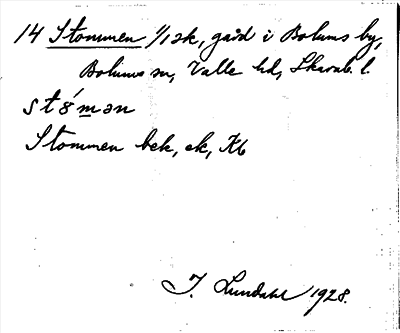 14 Stommen 1/1 ek, gård i Bolums by,
Bolums sn, Valle hd, Skarab. l.
stȣ́mən
Stommen bek, ek, Kb
J. Lundahl 1928.